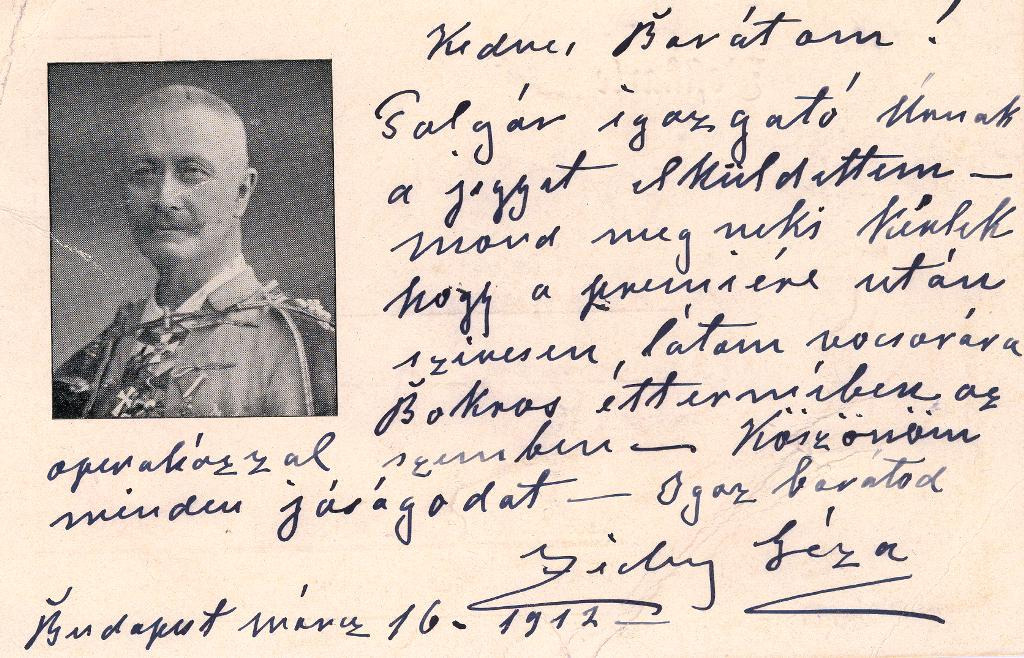 Kedves Barátom!
Salgár igazgató Úrnak
a jegyet elküldettem —
mond meg neki kérlek
hogy a premiére után
szivesen látom vacsorára
Bokros éttermében az
operaházzal szemben — Köszönöm
minden jóságodat — Igaz barátod
Zichy Géza
Budapest márcz 16. 1912 —